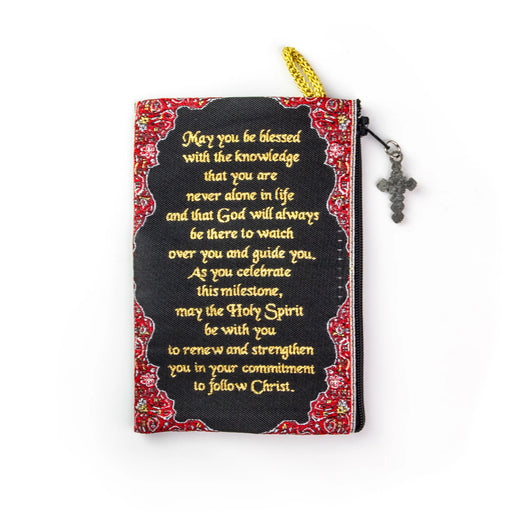 May you be blessed
with the knowledge
that you are
never alone in life
and that God will always
be there to watch
over you and guide you.
As you celebrate
this milestone,
may the Holy Spirit
be with you
to renew and strengthen
you in your commitment
to follow Christ.